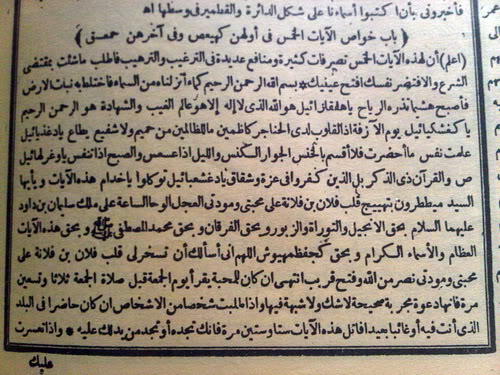 فأخبروني بأن اكتبوا أسماءنا على شكل الدائرة والقطمير في وسطها اه
(باب خواص الآيات الخمس في أولهن كهيعص وفى آخرهن حمعسق)
(اعلم) أن لهذه الآيات الخمس تصرفات كثيرة ومنافع عديدة فى الترغيب والترهيب فاطلب ماشئت بمقتضى
الشرع والا فتضر نفسك افتح عينيك * بسم الله الرحمن الرحيم كماء أنزلناه من السماء فاختلط به نبات الارض
فأصبح هشيما تذروه الرياح ياهلقفائيل هو الله الذى لا إله إلا هو عالم الغيب والشهادة هو الرحمن الرحيم
يا كفشكيائيل يوم الآزفة اذ القلوب لدى الحناجر كاظمين ماللظالمين من حميم ولا شفيع يطاع يادغذيائيل
علمت نفس ما أحضرت فلا أقسم بالخنس الجوار الكنس والليل اذا عسعس والصبح اذا تنفس ياوغرلهائيل
ص والقرآن ذى الذكر بل الذين كفروا فى عزة وشقاق يادغشعيائيل توكلوا ياخدام هذه الآيات و يأيها
السيد ميططرون بتهييج قلب فلان بن فلانة على محبتى ومودتى العجل الوحا الساعة على ملك سليمان بن داود
عليهما السلام بحق الانجيل والتوراة والزبور و بحق الفرقان و بحق محمد المصطفى ﷺ و بحق هذه الآيات
العظام والأسماء الكرام و بحق اللهم انى أسألك أن تسخرلى قلب فلان بن فلانة على
محبتى ومودتى نصر من الله وفتح قريب انتهى ان كان للمحبة يقرأ يوم الجمعة قبل صلاة الجمعة ثلاثا وتسعين
مرة فانها دعوة مجربة صحيحة لاشك ولا شبهة فيها واذا طلبت شخصا من الاشخاص ان كان حاضرا فى البلد
الذى أنت فيه أو غائبا بعيدا فاتل هذه الآيات ستا وستين مرة فانك تجده أو تجد من يدلك عليه * واذا تعسرت
عليك